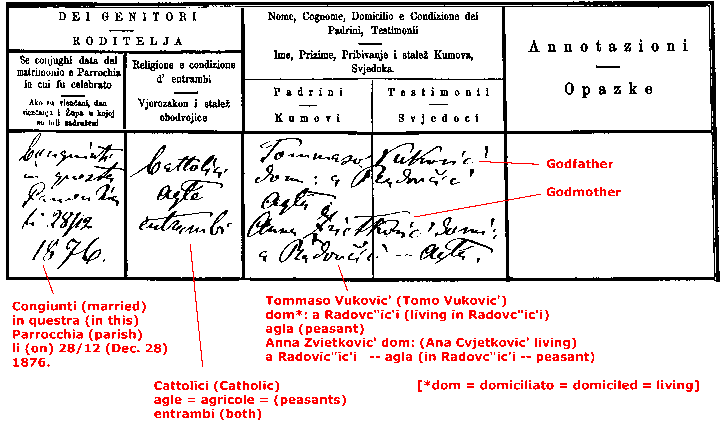 DEI GENITORI
RODITELJA
Se conjughi data del
matrimonio e Parrochia
in cui fu celebrato
Ako su vienčani, dan
vienčanja i Župa u kojoj
su bili sadruženi
Religione e condizione
d' entrambi
Vjerozakon i stalež
obodvojice
Nome, Cognome, Domicilio e Condizione dei
Padrini, Testimonii
Ime, Prizime, Pribivanje i stalež Kumova,
Svjedoka.
Padrini
Kumovi
Testimonii
Svjedoci
Annotazioni
Opazke
Congiunti
in questa
Parrocchia
li 28/12
1876.
Cattolici
agle
entrambi
Tommaso Vukovic'
dom: a Radovčić'
agla
Anna Zvietković' domi:
a Radovčići -- agla.
Godfather
Godmother
Congiunti (married)
in questra (in this)
Parrocchia (parish)
li (on) 28/12 (Dec. 28)
1876.
Cattolici (Catholic)
agle = agricole = (peasants)
entrambi (both)
Tommaso Vukovic' (Tomo Vukovic')
dom*: a Radovc"ic'i (living in Radovc"ic'i)
agla (peasant)
Anna Zvietkovic' dom: (Ana Cvjetkovic' living)
a Radovic"ic'i -- agla (in Radovc"ic'i -- peasant)
[*dom = domiciliato = domiciled = living]